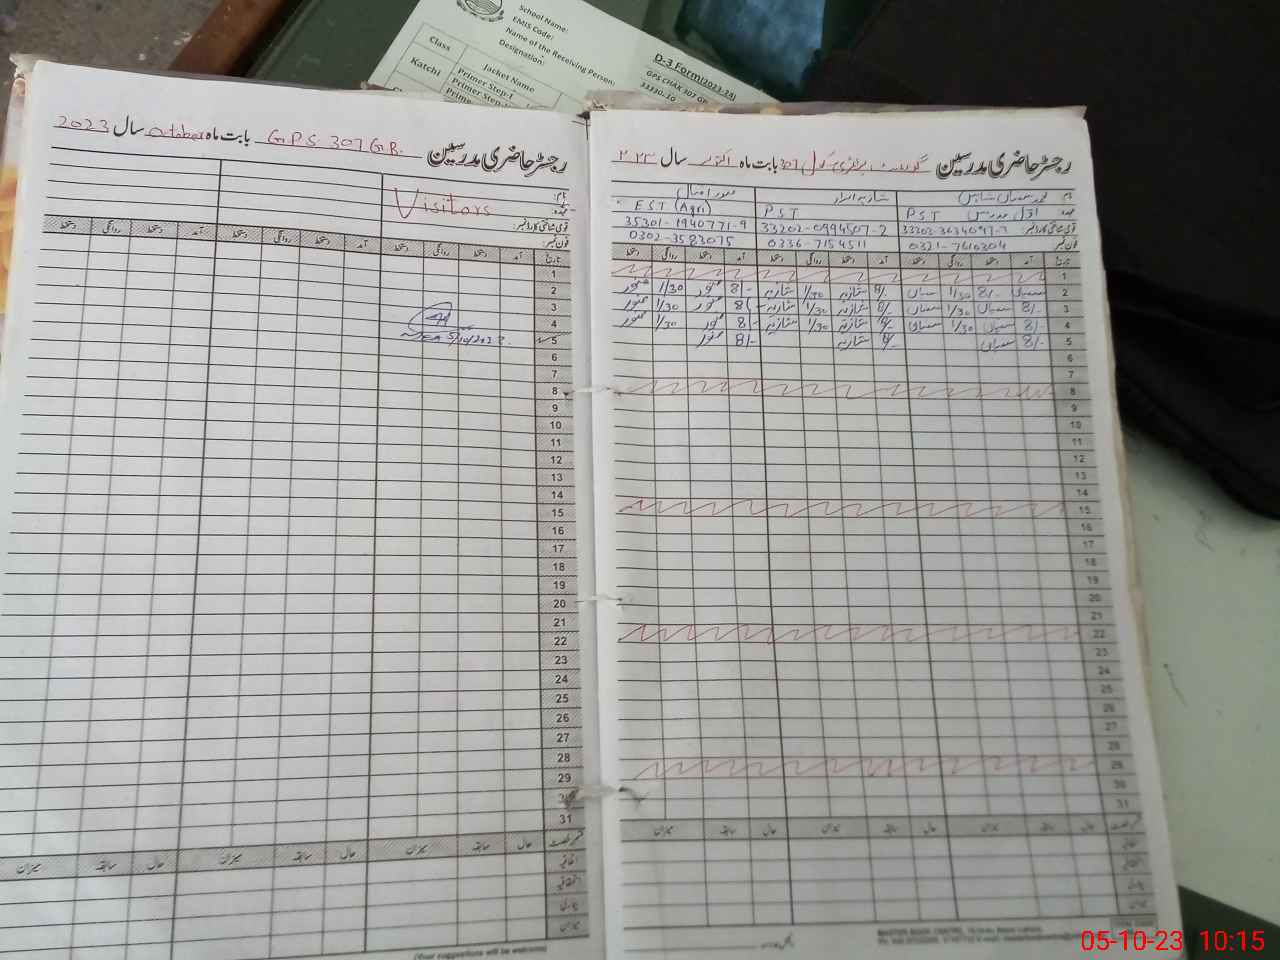 School Name:
EMIS Code:
Name of the Receiving Person:
Designation:
D-3 Form(2023-24)
GPS CHAK 307 GB
Class
Jacket Name
Katchi
Primer Step-I
Primer Step
Prime
رجسٹر حاضری مدرسین G.P.S 307 G.B. بابت ماہ October سال 2023
نام:
عہدہ: Visitors
قومی شناختی کارڈ نمبر:
فون نمبر:
تاریخ آمد دستخط روانگی دستخط آمد دستخط روانگی دستخط آمد دستخط روانگی دستخط
1
2
3
4
5 5/10/2023
6
7
8
9
10
11
12
13
14
15
16
17
18
19
20
21
22
23
24
25
26
27
28
29
30
31
حال سابقہ میزان حال سابقہ میزان حال سابقہ میزان
اتفاقیہ
بیماری
میزان
(Your suggestions will be welcome)
رجسٹر حاضری مدرسین گورنمنٹ پرائمری سکول 307 بابت ماہ اکتوبر سال ۲۰۲۳
نام:
عہدہ: اول مدرس PST PST EST (Agri)
قومی شناختی کارڈ نمبر: 33202-0994507-2 35301-1940771-9
فون نمبر: 0321-7610304 0336-7154511 0302-3583075
تاریخ آمد دستخط روانگی دستخط آمد دستخط روانگی دستخط آمد دستخط روانگی دستخط
1
2 8/- 1/30 شازیہ 8/- 1/30 شازیہ 8/- 1/30
3 8/- 1/30 شازیہ 8/- 1/30 شازیہ 8/- 1/30
4 8/- 1/30 شازیہ 8/- 1/30 شازیہ 8/- 1/30
5 8/- شازیہ 8/- 8/-
6
7
8
9
10
11
12
13
14
15
16
17
18
19
20
21
22
23
24
25
26
27
28
29
30
31
حال سابقہ میزان حال سابقہ میزان حال سابقہ میزان
اتفاقیہ
بیماری
میزان
05-10-23 10:15